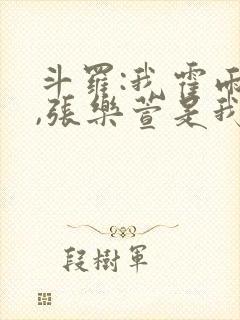 斗羅:我霍雨
,張樂萱是我
段樹軍